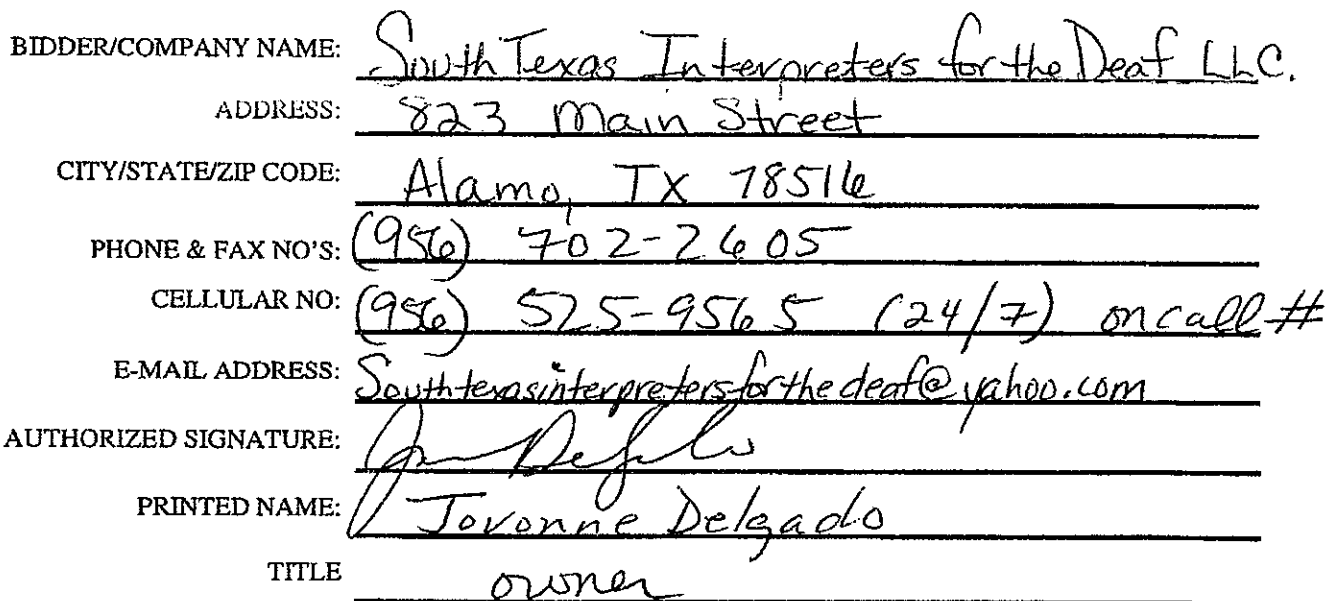 BIDDER/COMPANY NAME: South Texas Interpreters for the Deaf LLC.
ADDRESS: 823 Main Street
CITY/STATE/ZIP CODE: Alamo, TX 78516
PHONE & FAX NO'S: (956) 702-2605
CELLULAR NO: (956) 525-9565 (24/7) on call #
E-MAIL ADDRESS: Southtexasinterpretersforthedeaf@yahoo.com
AUTHORIZED SIGNATURE:
PRINTED NAME: Jovonne Delgado
TITLE owner